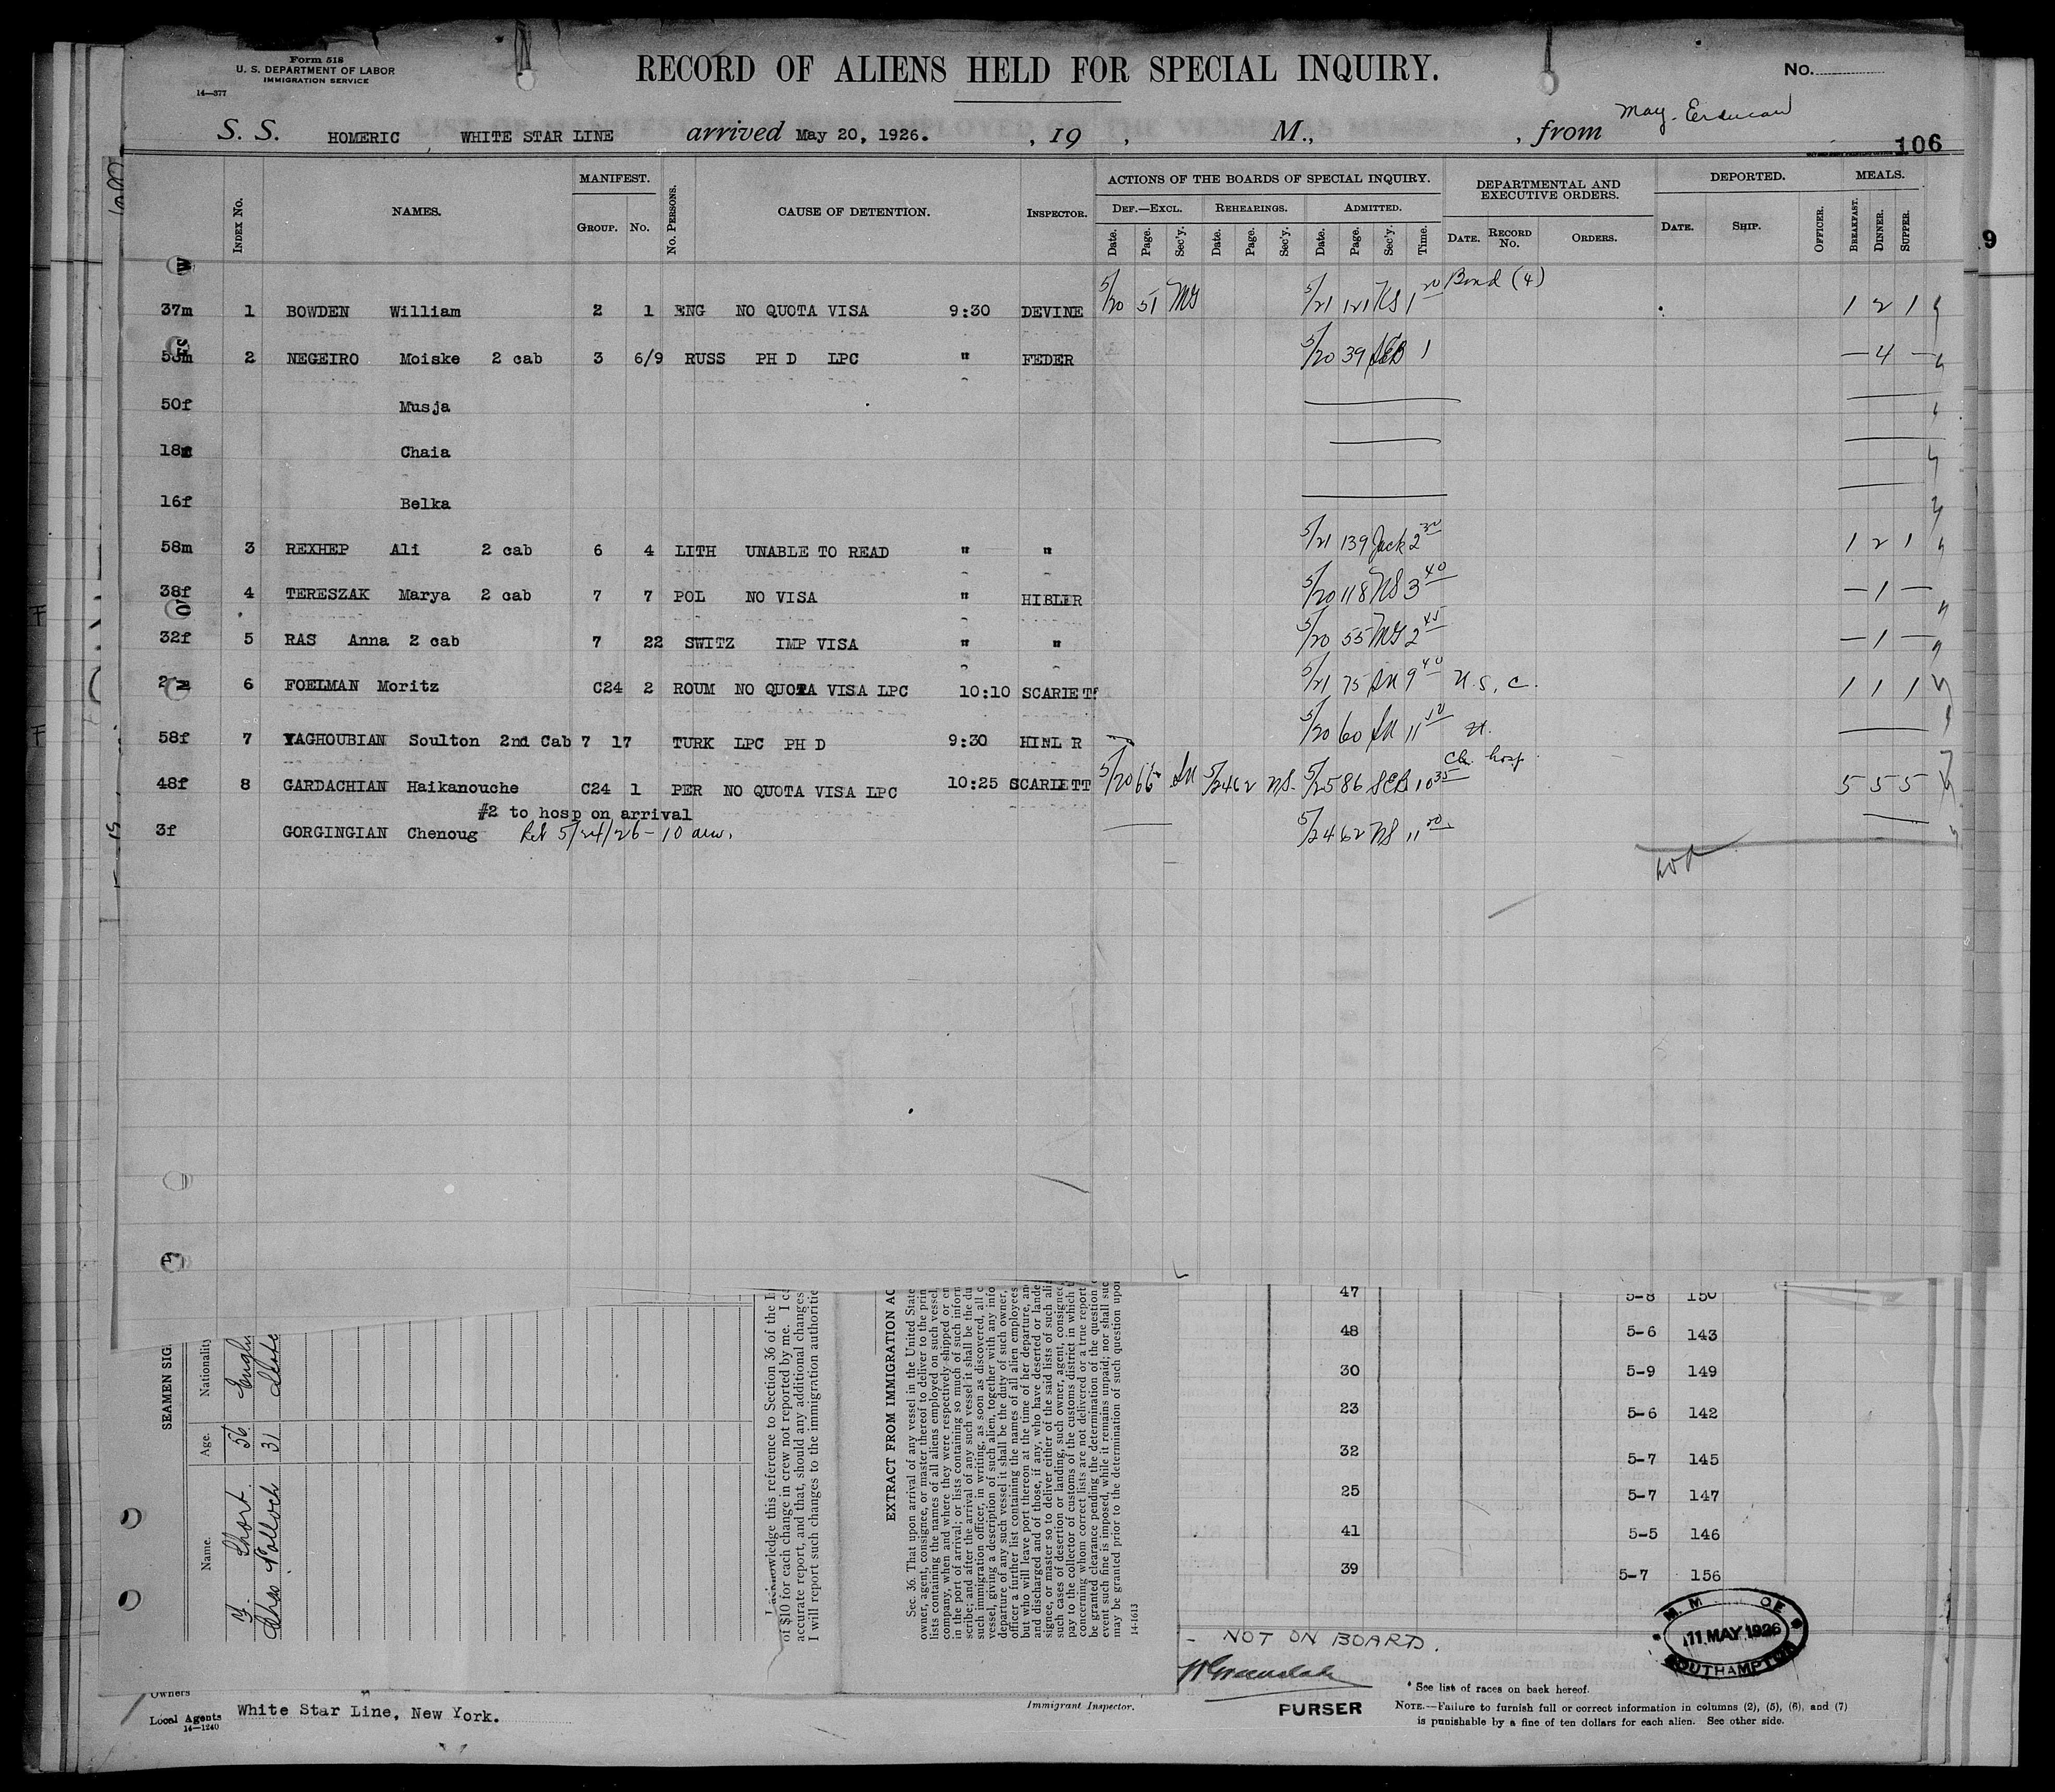 Form 518
U. S. DEPARTMENT OF LABOR
IMMIGRATION SERVICE
14—377
RECORD OF ALIENS HELD FOR SPECIAL INQUIRY.
No.
S. S. HOMERIC , WHITE STAR LINE arrived May 20, 1926. , 19 , M., , from
106
INDEX No. NAMES. MANIFEST. GROUP. No. No. PERSONS. CAUSE OF DETENTION. INSPECTOR. ACTIONS OF THE BOARDS OF SPECIAL INQUIRY. DEPARTMENTAL AND EXECUTIVE ORDERS. DEPORTED. MEALS.
DEF.—EXCL. REHEARINGS. ADMITTED.
Date. Page. Sec'y. Date. Page. Sec'y. Date. Page. Sec'y. Time. DATE. RECORD No. ORDERS. DATE. SHIP. OFFICER. BREAKFAST. DINNER. SUPPER.
9
37m 1 BOWDEN William 2 1 ENG NO QUOTA VISA 9:30 DEVINE 5/20 51 5/21 121 1 20 Bond (4) 1 2 1
2 NEGEIRO Moiske 2 cab 3 6/9 RUSS PH D LPC " FEDER 5/20 39 SEB 1 — 4 —
50f Musja
Chaia
16f Belka
58m 3 REXHEP Ali 2 cab 6 4 LITH UNABLE TO READ " " 5/21 139 Jack 2 30 1 2 1
38f 4 TERESZAK Marya 2 cab 7 7 POL NO VISA " HIBLER 5/20 118 NS 3 40 — 1 —
32f 5 RAS Anna 2 cab 7 22 SWITZ IMP VISA " " 5/20 55 2 45 — 1 —
6 FOELMAN Moritz C24 2 ROUM NO QUOTA VISA LPC 10:10 SCARLETT 5/21 75 9 40 U.S.C. 1 1 1
58f 7 YAGHOUBIAN Soulton 2nd Cab 7 17 TURK LPC PH D 9:30 5/20 60 11
48f 8 GARDACHIAN Haikanouche C24 1 PER NO QUOTA VISA LPC 10:25 SCARLETT 5/20 66 5/24 62 NS. 5/25 86 SEB 10 35 hosp 5 5 5
#2 to hosp on arrival
3f GORGINGIAN Chenoug 5/24/26 - 10 am. 5/24 62 NS 11
47 5-8 150
48 5-6 143
30 5-9 149
23 5-6 142
32 5-7 145
25 5-7 147
41 5-5 146
39 5-7 156
SEAMEN SIG
Name. Age. Nationality
Short. 56
Chas. Pollock 31
I acknowledge this reference to Section 36 of the
of $10 for each change in crew not reported by me.
accurate report, and that, should any additional changes
I will report such changes to the immigration authoritie
EXTRACT FROM IMMIGRATION AC
Sec. 36. That upon arrival of any vessel in the United State
owner, agent, consignee, or master thereof to deliver to the prin
lists containing the names of all aliens employed on such vessel,
company, when and where they were respectively shipped or en
in the port of arrival; or lists containing so much of such inform
scribe; and after the arrival of any such vessel it shall be the du
such immigration officer, in writing, as soon as discovered, all c
vessel, giving a description of such alien, together with any info
departure of any such vessel it shall be the duty of such owner,
officer a further list containing the names of all alien employees
but who will leave port thereon at the time of her departure, an
and discharged and of those, if any, who have deserted or lande
signee, or master so to deliver either of the said lists of such ali
such cases of desertion or landing, such owner, agent, consignee
pay to the collector of customs of the customs district in which
concerning whom correct lists are not delivered or a true report
be granted clearance pending the determination of the question
event such fine is imposed, while it remains unpaid; nor shall suc
may be granted prior to the determination of such question upon
14-1613
- NOT ON BOARD.
PURSER
11 MAY 1926
SOUTHAMPTON
* See list of races on back hereof.
NOTE.—Failure to furnish full or correct information in columns (2), (5), (6), and (7)
is punishable by a fine of ten dollars for each alien. See other side.
Immigrant Inspector.
Owners
Local Agents White Star Line, New York.
14—1240